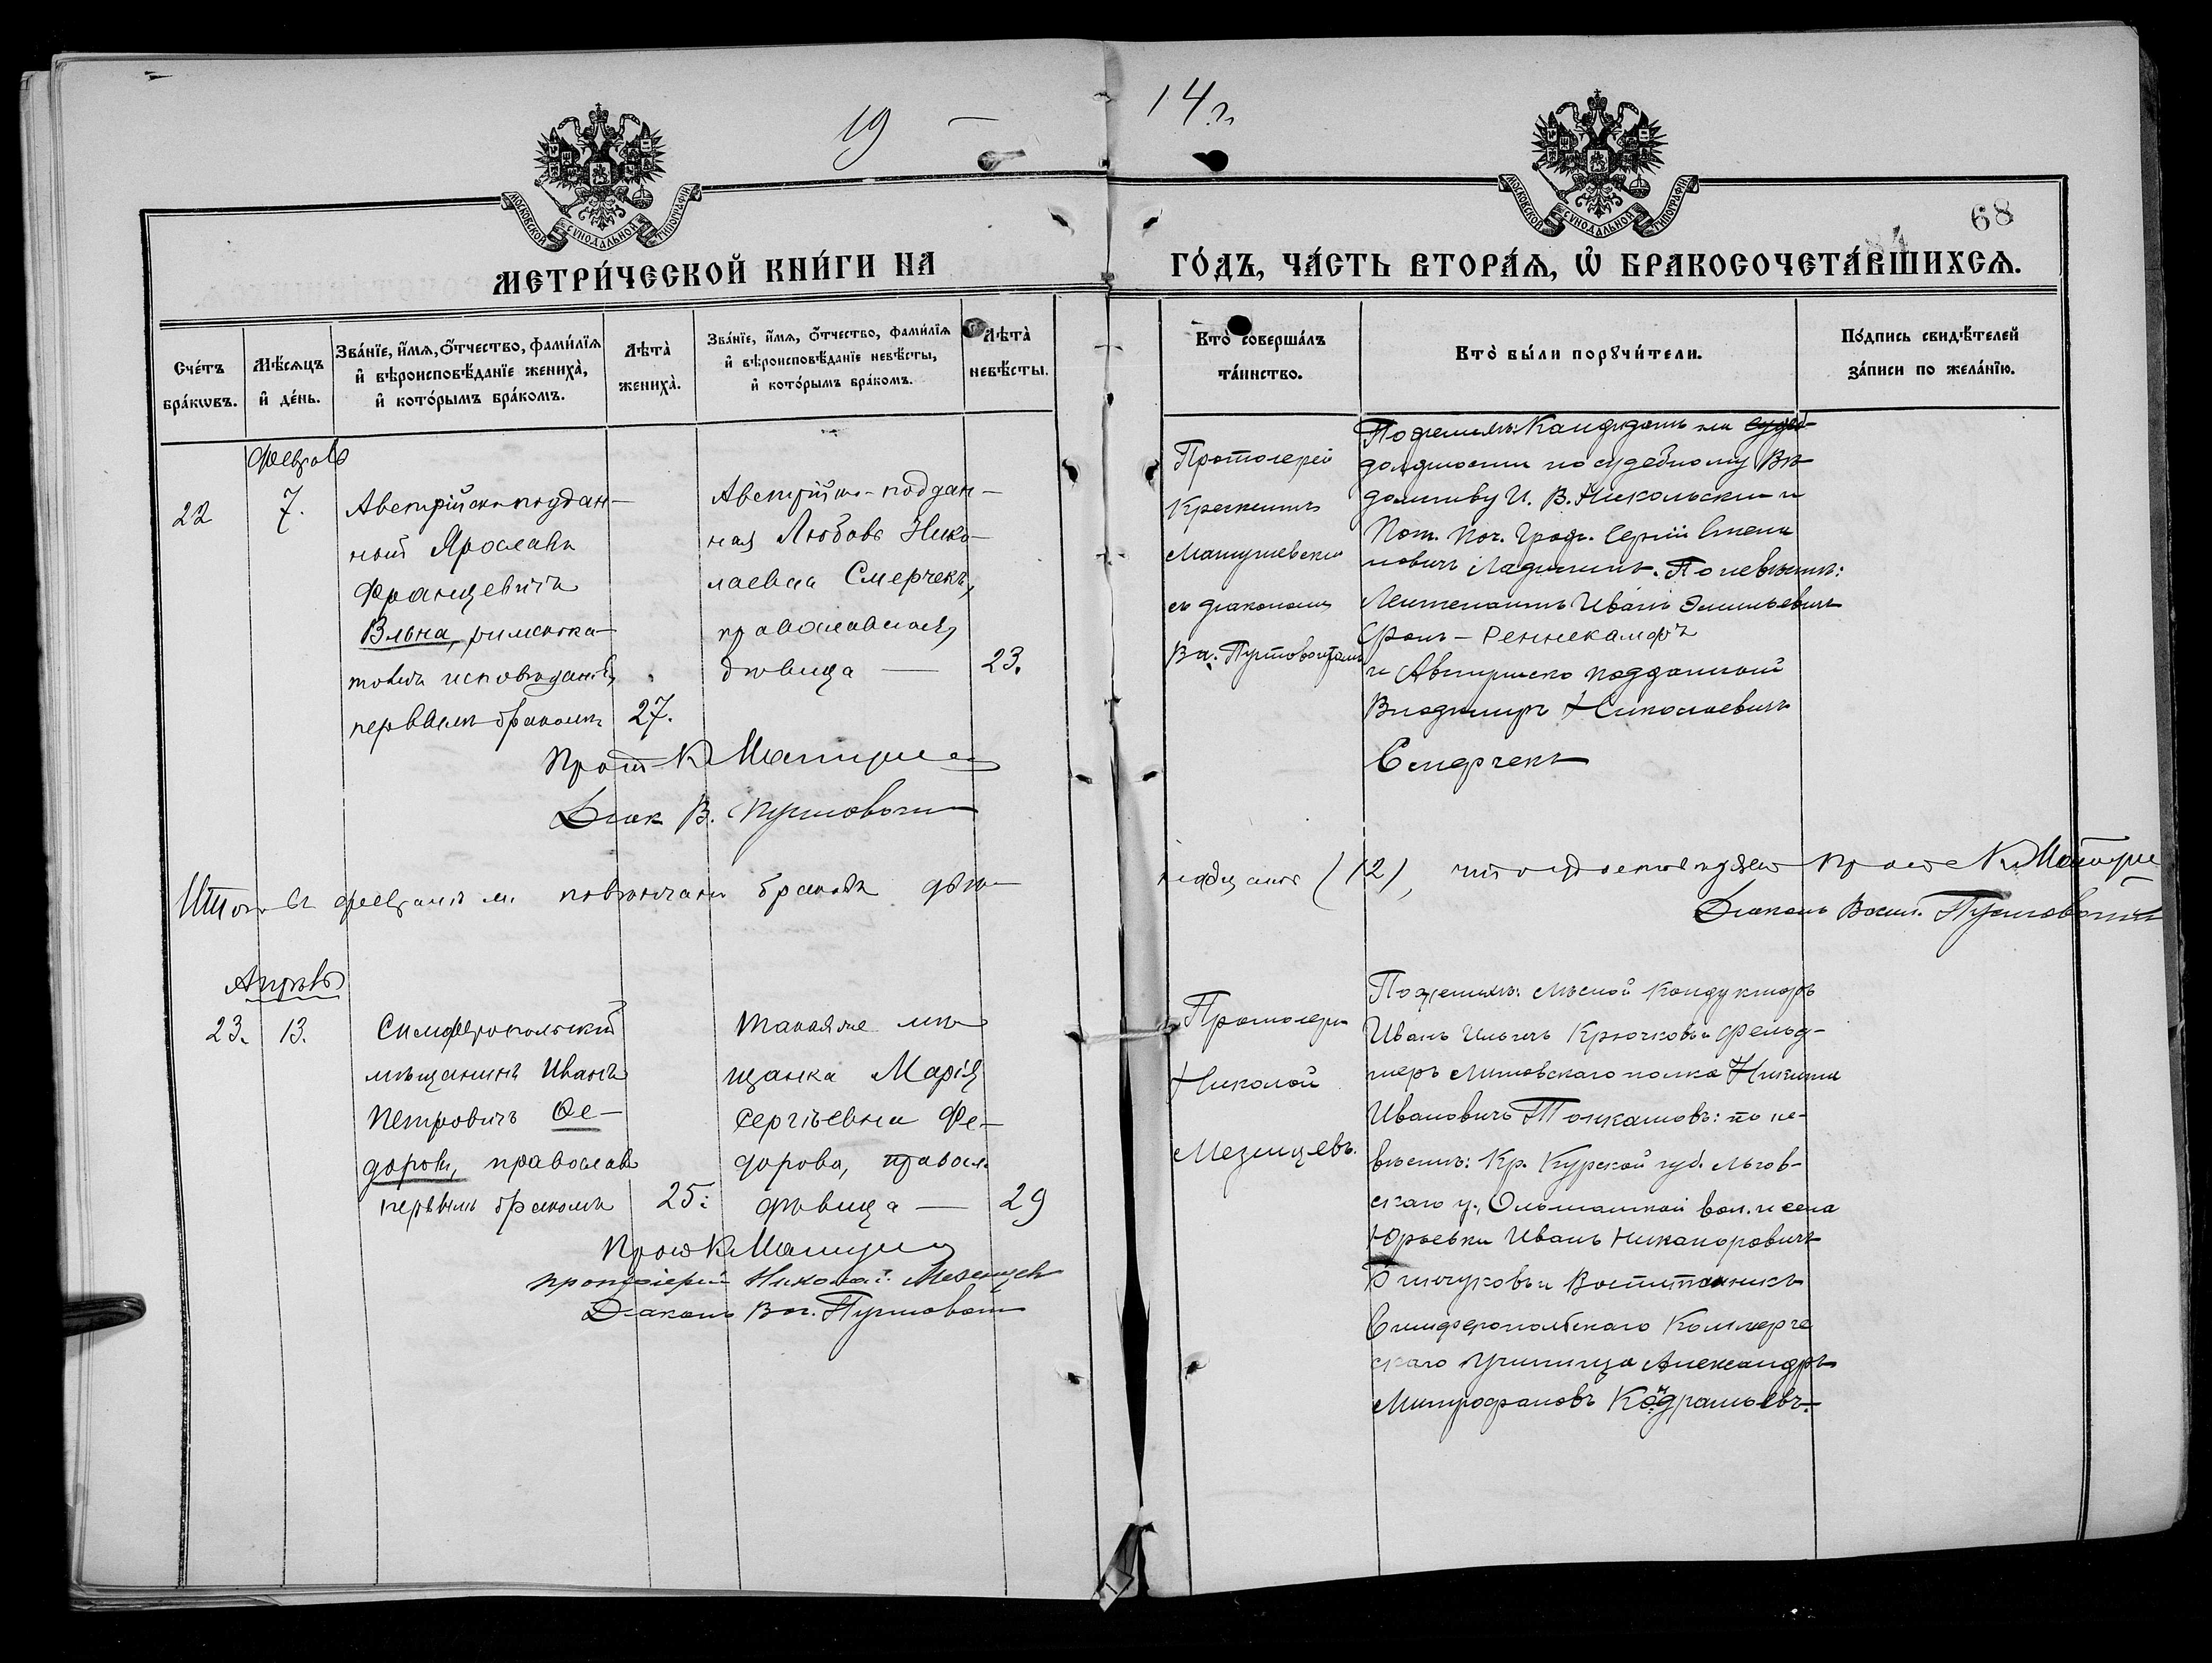 19 — 14 г.
МОСКОВСКОЙ СУНОДАЛЬНОЙ ТИПОГРАФІИ
МОСКОВСКОЙ СУНОДАЛЬНОЙ ТИПОГРАФІИ
68
84
МЕТРИ́ЧЕСКОЙ КНИ́ГИ НА ГО́ДЪ, ЧА́СТЬ ВТОРА́Я, Ѡ҆ БРАКОСОЧЕТА́ВШИХСЯ.
Сче́тъ бра́кѡвъ.
Мѣ́сяцъ и҆ де́нь.
Зва́нїе, и҆́мя, ѻ҆́тчество, фами́лїя и҆ вѣроисповѣ́данїе жениха̀, и҆ кото́рымъ бра́комъ.
Лѣта̀ жениха̀.
Зва́нїе, и҆́мя, ѻ҆́тчество, фами́лїя и҆ вѣроисповѣ́данїе невѣ́сты, и҆ кото́рымъ бра́комъ.
Лѣта̀ невѣ́сты.
Кто̀ соверша́лъ та́инство.
Кто̀ бы́ли порꙋчи́тели.
По́дпись свидѣ́телей за́писи по жела́нїю.
Февраль
22
7.
Австрійско-поддан-
ный Ярославъ
Францевичъ
Вльна, римско-ка-
толич исповѣданія,
первымъ бракомъ
27.
Австрійско-поддан-
ная Любовь Нико-
лаевна Смерчекъ,
православная,
дѣвица —
23.
Протоіерей
Крескентъ
Матушевскій
съ діакономъ
Вас. Пустовойтомъ
По женихѣ: Кандидатъ на
должности по судебному Вѣ-
домству И. В. Никольскій и
Пот. Поч. Гражд. Сергій Степа
новичъ Ладыгинъ. По невѣстѣ:
Лейтенантъ Иванъ Эмильевичъ
Фонъ-Ренненкамфъ
и Австрійско подданный
Владимиръ Николаевичъ
Смерчекъ
Прот К Матушев
Діак В. Пустовойт
Итого въ февралѣ м. повѣнчано браковъ двѣ-
надцать (12), что удостовѣряемъ Прот К Матуше
Діаконъ Васил. Пустовойтъ
Апрѣль
23.
13.
Симферопольскій
мѣщанинъ Иванъ
Петровичъ Ѳе-
доровъ, православ
первымъ бракомъ
25.
такая же мѣ-
щанка Марія
Сергіевна Фе-
дорова, правосл.
дѣвица —
29
Протоіерей
Николай
Мезенцевъ.
По женихѣ: Лѣсной Кондукторъ
Иванъ Ильичъ Крючковъ и Фельд-
шеръ Литовскаго полка Никита
Ивановичъ Толкачовъ: по не-
вѣстѣ: Кр. Курской губ. Льгов-
скаго у., Ольшанской вол. и села
Юрьевки Иванъ Никаноровичъ
и Воспитанникъ
Симферопольскаго Коммерче
скаго училища Александръ
Митрофановъ Кондратьевъ.
Прот К Матушев
протоіерей Николай Мезенцев
Діаконъ Вас. Пустовойт